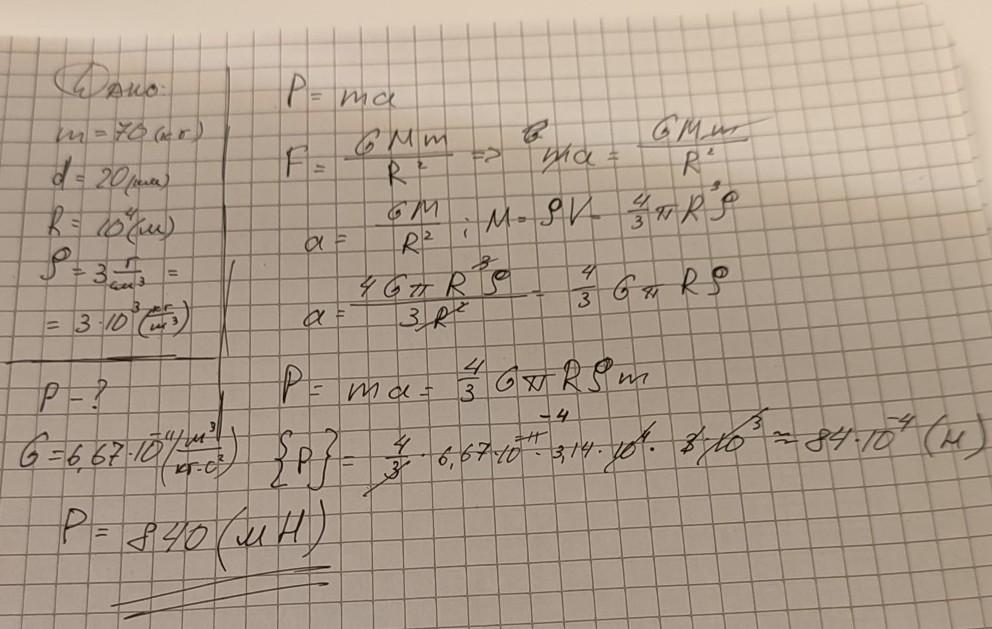 Дано:
m = 70 (кг)
d = 20 (км)
R = 10⁴ (м)
ρ = 3 г/см³ =
= 3·10³ (кг/м³)
P - ?
G = 6,67·10⁻¹¹ (м³/кг·с²)
P = ma
F = GMm/R² => ma = GMm/R²
a = GM/R² ; M = ρV = 4/3 πR³ρ
a = 4GπR³ρ/3R² = 4/3 GπRρ
P = ma = 4/3 GπRρm
{P} = 4/3 · 6,67·10⁻¹¹ ⁻⁴ · 3,14 · 10⁴ · 3·10³ ≈ 84·10⁻⁴ (Н)
P = 840 (мН)